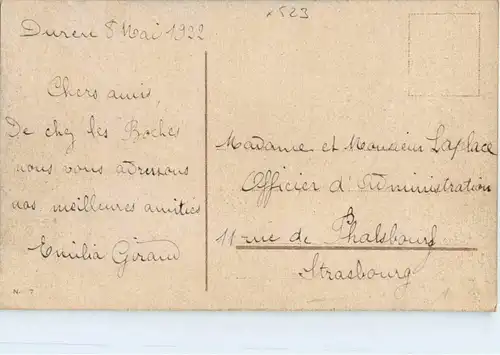 x 523
Duren 8 Mai 1922
Chers amis,
De chez les Boches
nous vous adressons
nos meilleures amitiés
Emilia Giraud
N. 7
Madame et Monsieur Laplace
Officier d'Administration
11 rue de Phalsbourg
Strasbourg